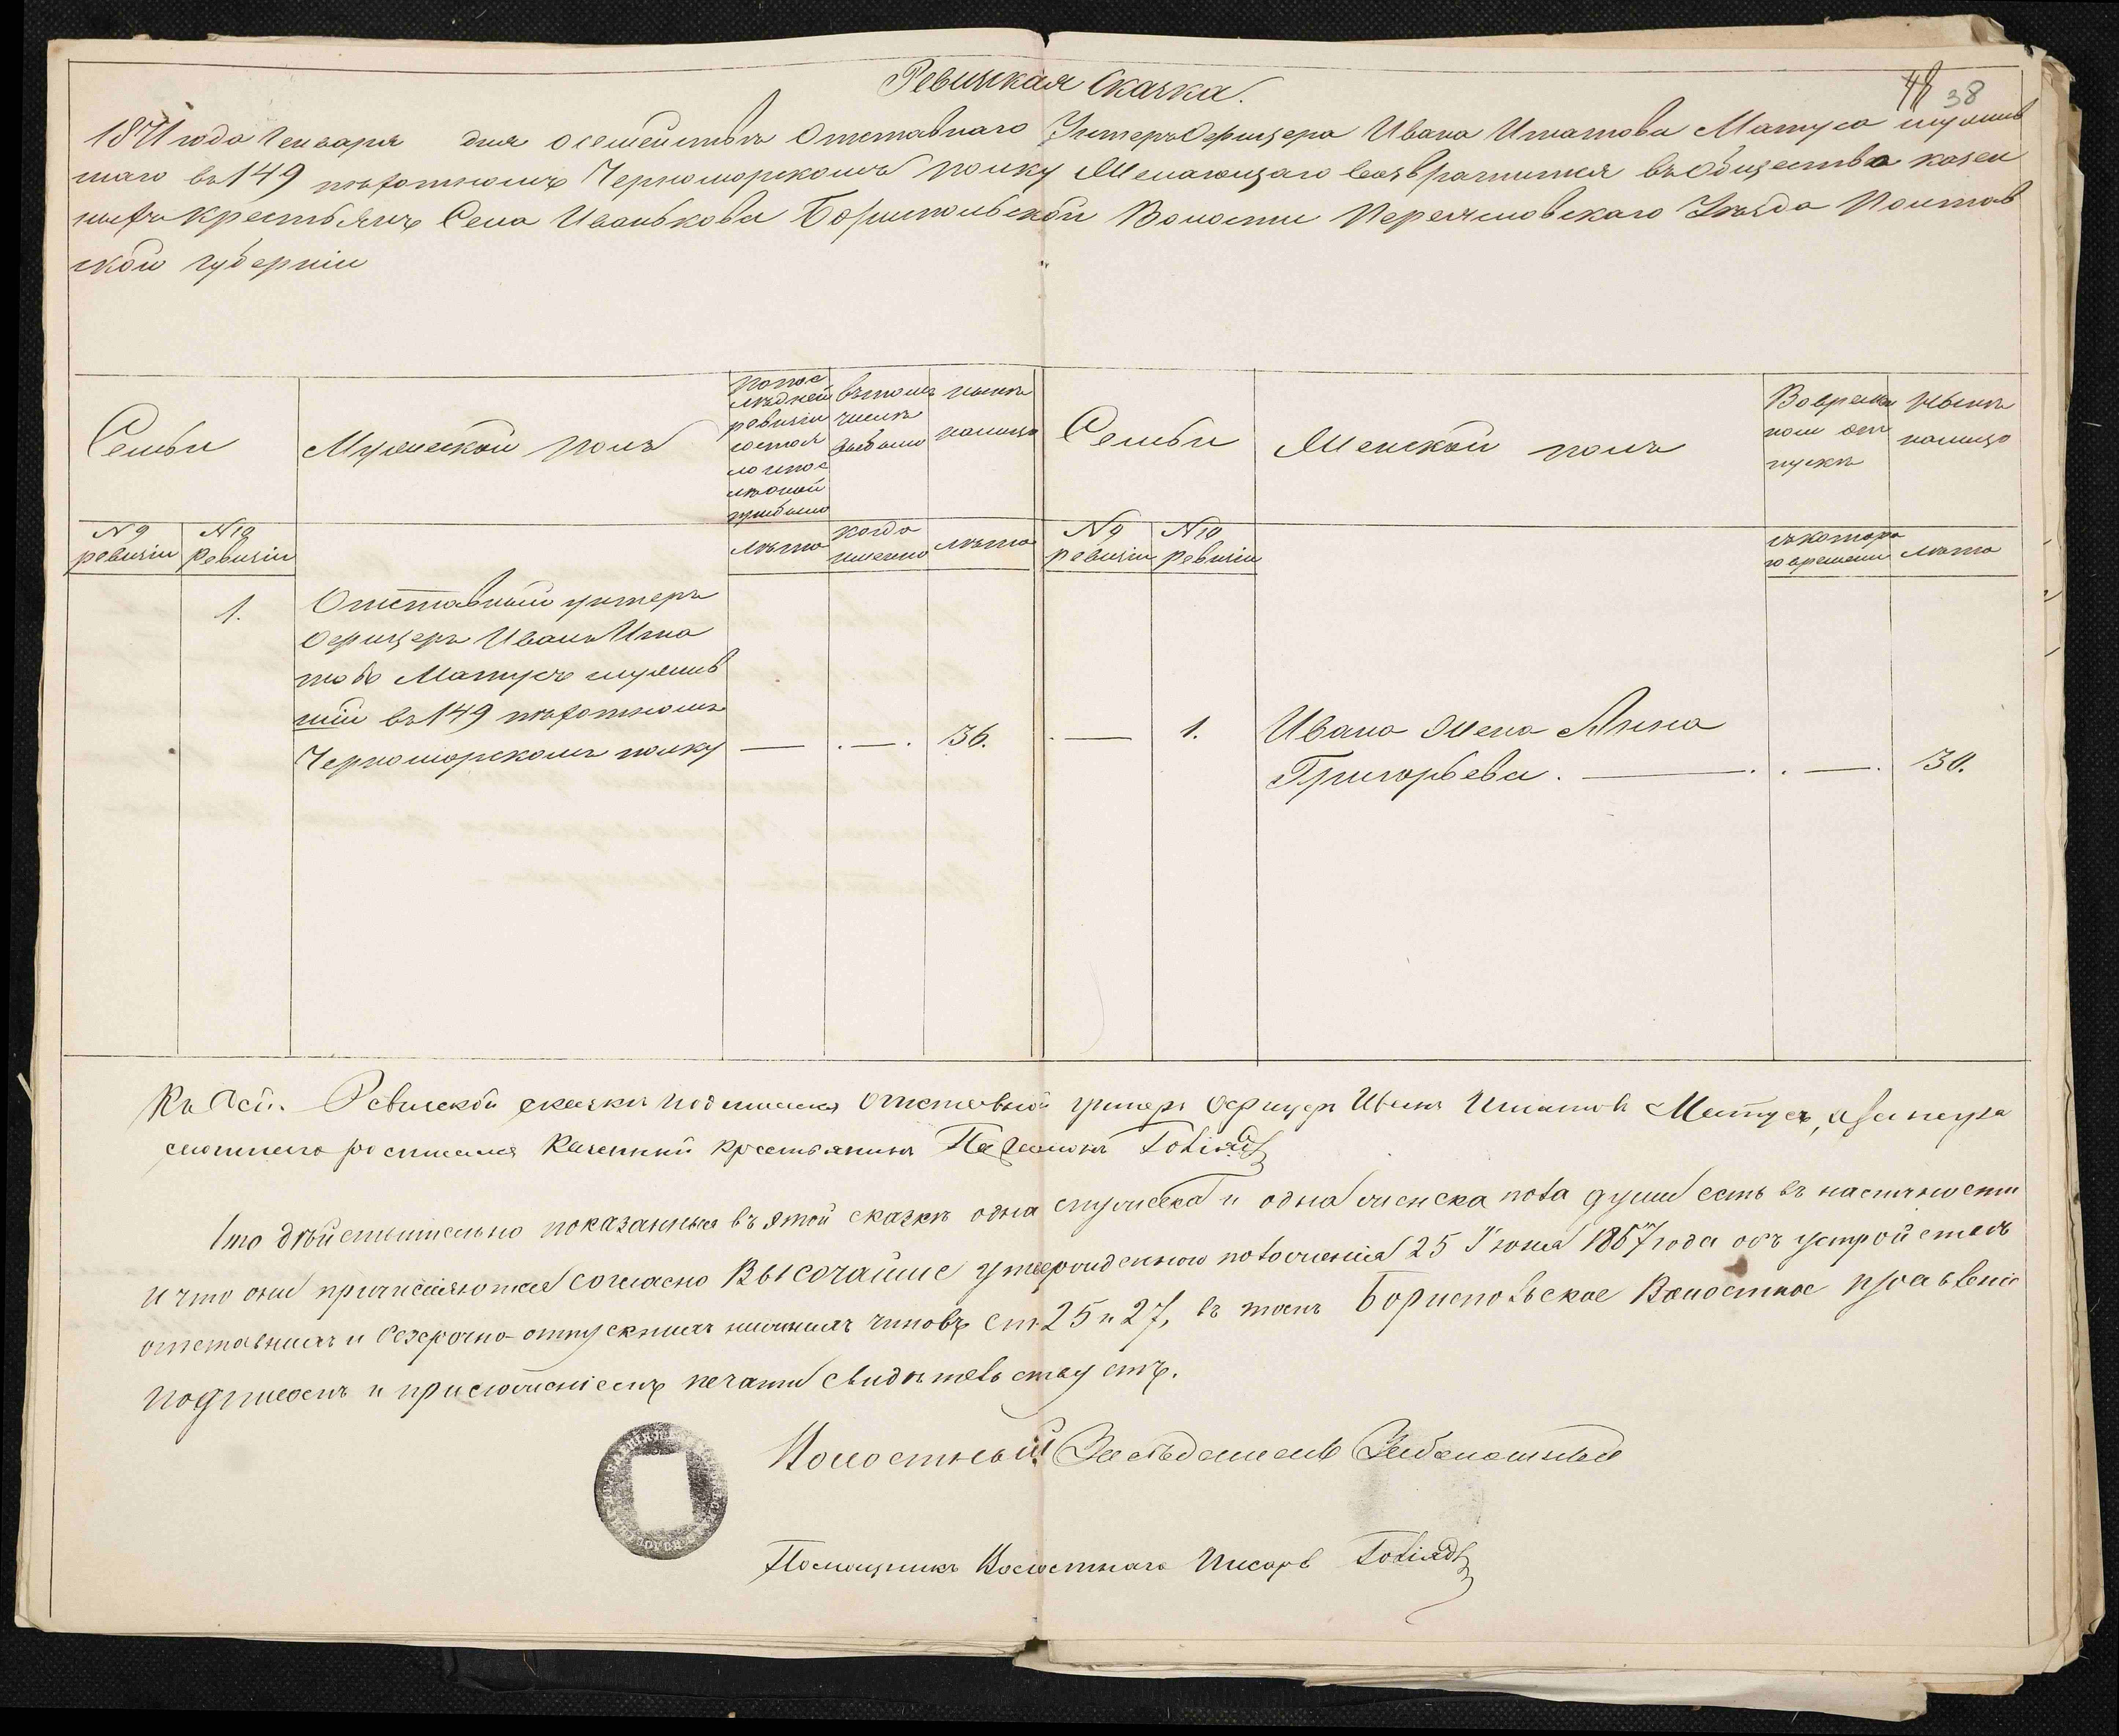 Ревизкая Сказка.
48 38
1871 года Генваря дня о семействѣ Отставнаго Унтеръ Офицера Ивана Игнатова Матуса служив
шаго въ 149 пѣхотномъ Черноморскомъ полку Желающаго возвратится въ общество казен
ныхъ крестьянъ Села Иванькова Борисполь­ской Волости Переясловскаго Уѣзда Полтав
ской губерніи
Семьи
Мужеской полъ
попос
лѣдней
ревизіи
состоя
ло и пос
лѣ оной
прибыло
въ томъ
числѣ
выбыло
нынѣ
налицо
Семьи
Женской полъ
Во времен
ном от
пускѣ
нынѣ
налицо
№ 9
ревизіи
№ 10
Ревизіи
лѣта
когда
именно
лѣта
№ 9
ревизіи
№ 10
Ревизіи
съ котора
го времени
лѣта
1.
Отставный унтеръ
Офицеръ Иванъ Игна
товъ Матусъ служив
шій въ 149 пѣхотномъ
Черноморскомъ полку — . — . 36.
. — 1. Ивана жена Анна
Григорьева. — . . — . 30.
Къ сей Ревизской сказки подписался Отставной унтеръ Офицеръ Иванъ Игнатовъ Матусъ, а за негра
мотнаго росписался Казенный крестьянинъ
Что дѣйствительно показанные въ этой сказкѣ одна мужеска и одна женска пола души есть въ наличности
и что они причисляются согласно Высочайше утвержденнаго положенія 25 Іюня 1867 года объ устройствѣ
отставныхъ и безсрочно-отпускныхъ нижнихъ чиновъ ст. 25 и 27, въ томъ Бориспольское Волостное правленіе
подписомъ и приложеніемъ печати свидѣтельствуетъ.
Волостный Засѣдатель
Помощникъ Волостнаго Писаря